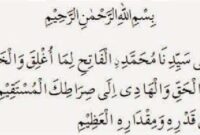 بِسْمِ اللهِ الرَّحْمٰنِ الرَّحِيْمِ
سَيِّدِنَا مُحَمَّدِ الْفَاتِحِ لِمَا أُغْلِقَ وَالْخَ
الْحَقِّ وَالْهَادِى إِلَى صِرَاطِكَ الْمُسْتَقِيْمِ
قَدْرِهِ وَمِقْدَارِهِ الْعَظِيْمِ